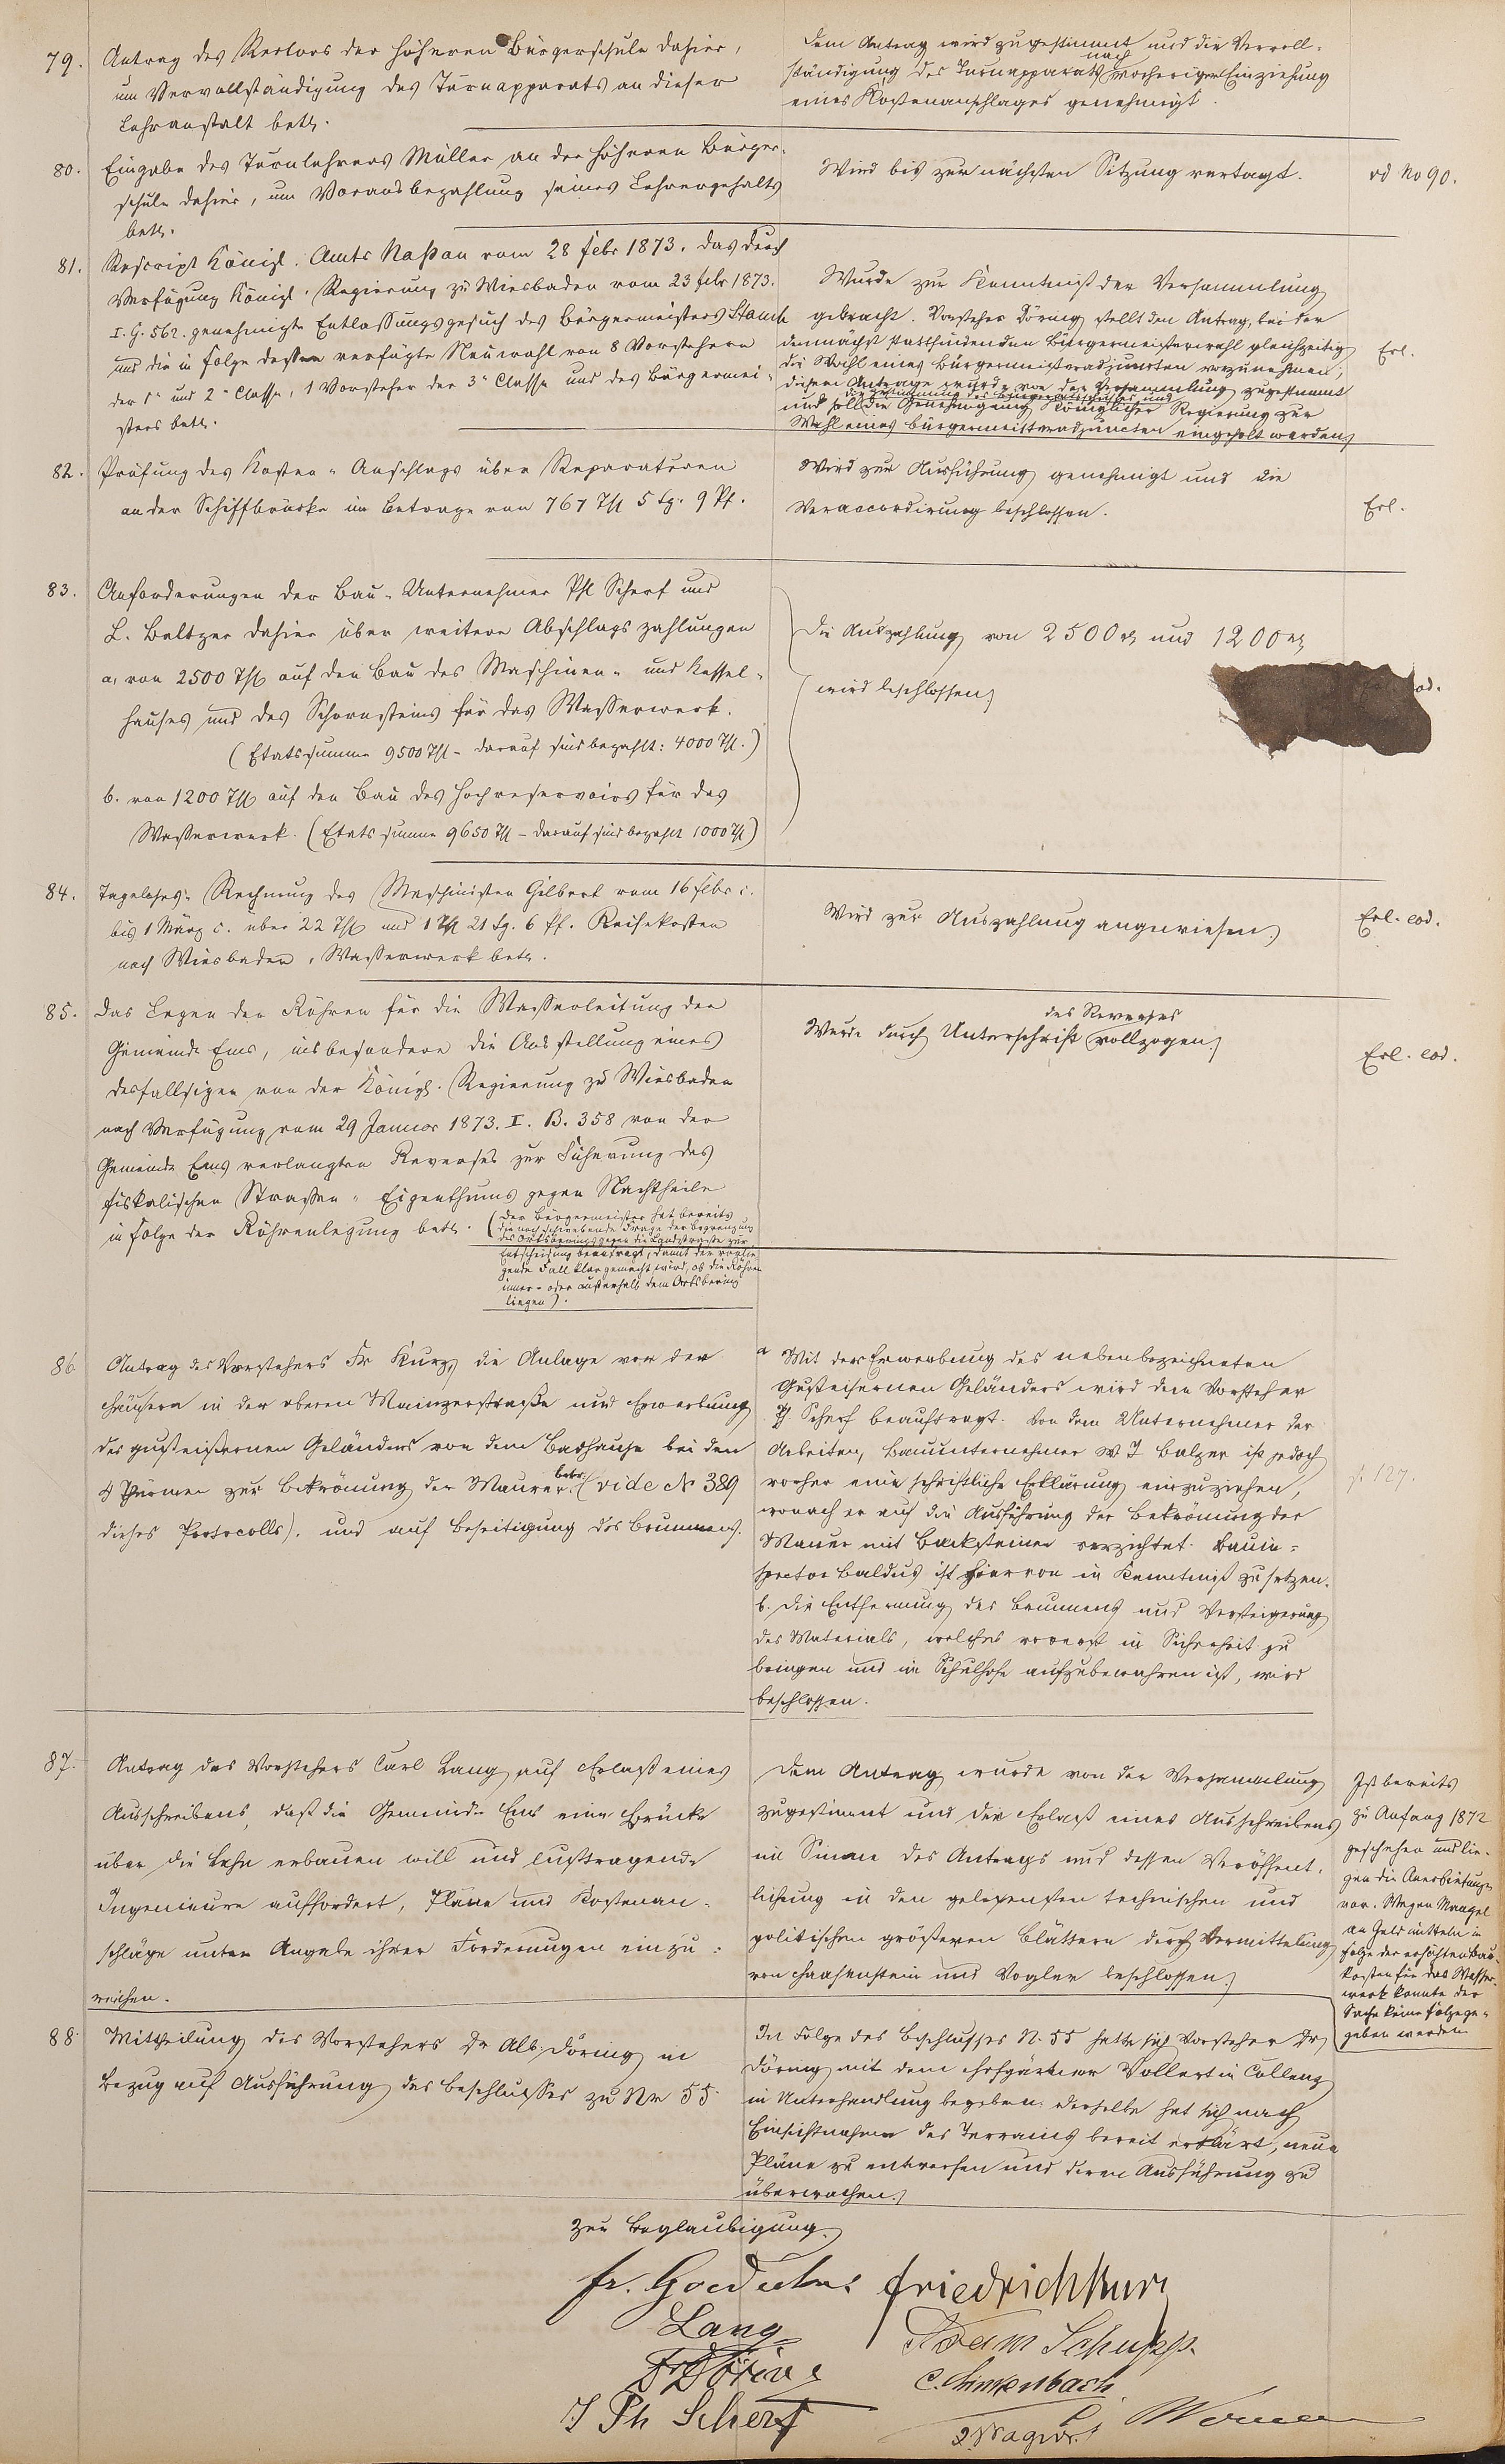 79. Antrag des Rectors der höheren Bürgerschule dahier,
um Vervollständigung des Turnapparats an dieser
Lehranstalt betr.
Dem Antrag wird zugestimmt und die Vervoll-
ständigung des Turnapparats nach vorheriger Einziehung
eines Kostenanschlages genehmigt.
80. Eingabe des Turnlehrers Müller an der höheren Bürger-
schule dahier, um Vorausbezahlung seines Lehrergehalts
betr.
Wird bis zur nächsten Sitzung vertagt.
ad No 90.
81. Rescript Königl. Amts Naßau vom 28 Febr 1873. das durch
Verfügung Königl. Regierung zu Wiesbaden vom 23 febr 1873.
I. G. 562. genehmigte Entlassungsgesuch des Bürgermeisters
und die in Folge dessen verfügte Neuwahl von 8 Vorstehern
der 1n und 2n Classe, 1 Vorsteher der 3n Classe und des Bürgermei-
sters betr.
Wurde zur Kenntniß der Versammlung
gebracht. Vorsteher Döring stellt den Antrag, bei der
demnächst stattfindenden Bürgermeisterwahl gleichzeitig
die Wahl eines Bürgermeisteradjuncten vorzunehmen;
diesem Antrage wurde von der Versammlung zugestimmt
und soll die Genehmigung Königlicher Regierung zur
Wahl eines Bürgermeisteradjuncten eingeholt werden
Erl.
82. Prüfung des Kosten-Anschlags über Reparaturen
an der Schiffbrücke im Betrage von 767 Thl 5 Sg. 9 Pf.
Wird zur Ausführung genehmigt und die
Veraccordirung beschlossen.
Erl.
83. Anforderungen der Bau-Unternehmer Phl Scherf und
L. Baltzer dahier über weitere Abschlagszahlungen
a, von 2500 Thl auf den Bau des Maschinen- und Kessel-
hauses und des Schornsteins für das Wasserwerk.
(Etatssumme 9500 Thl - darauf sind bezahlt: 4000 Thl.)
b. von 1200 Thl auf den Bau des Hochreservoirs für das
Wasserwerk. (Etatssumme 9650 Thl - darauf sind bezahlt 1000 Thl)
Die Auszahlung von 2500 rt und 1200 rt
wird beschlossen
od.
84. Tagelohns-Rechnung des Maschinisten Gilbert vom 16 Febr c.
bis 1 März c. über 22 Thl und 1 Thl 21 Sg. 6 Pf. Reisekosten
nach Wiesbaden, Wasserwerk betr.
Wird zur Auszahlung angewiesen
Erl. eod.
85. Das Legen der Röhren für die Wasserleitung der
Gemeinde Ems, insbesondere die Ausstellung eines
desfallsigen von der Königl. Regierung zu Wiesbaden
nach Verfügung vom 29 Januar 1873. I. B. 358 von der
Gemeinde Ems verlangten Reverses zur Sicherung des
fiskalischen Straßen-Eigenthums gegen Nachtheile
in Folge der Röhrenlegung betr. (Der Bürgermeister hat bereits
die noch schwebende Frage der Begrenzung
des Ortsberings gegen die Landstraße zur
Entscheidung beantragt, damit der vorlie-
gende Fall klar gemacht wird, ob die Röhren
inner- oder außerhalb dem Ortsbering
liegen).
Wurde durch Unterschrift des Reverses vollzogen
Erl. eod.
86 Antrag des Vorstehers Fr Kurz, die Anlage vor den
Häusern in der oberen Mainzerstraße und Erwerbung
des gußeisernen Geländers von dem Badhause bei den
4 Thürmen zur Bekrönung der Mauer betr. (vide No 389
dieses Protocolls). und auf Beseitigung des Brunnens.
a Mit der Erwerbung des nebenbezeichneten
Gußeisernen Geländers wird dem Vorsteher
Scherf beauftragt. Von dem Unternehmer der
Arbeiten, Bauunternehmer Balzer ist jedoch
vorher eine schriftliche Erklärung einzuziehen,
wonach er auf die Ausführung der Bekrönung der
Mauer mit Backsteinen verzichtet. Bauin-
spector Baldus ist hiervon in Kenntniß zu setzen.
b. Die Entfernung des Brunnens und Versteigerung
des Materials, welches vorerst in Sicherheit zu
bringen und im Schulhofe aufzubewahren ist, wird
beschlossen.
127.
87. Antrag des Vorstehers Carl Lang auf Erlaß eines
Ausschreibens, daß die Gemeinde Ems eine Brücke
über die Lahn erbauen will und lusttragende
Ingenieure auffordert, Pläne und Kostenan-
schläge unter Angabe ihrer Forderungen einzu-
reichen.
Dem Antrag wurde von der Versammlung
zugestimmt und der Erlaß eines Ausschreibens
im Sinne des Antrags und dessen Veröffent-
lichung in den gelesensten technischen und
politischen größeren Blättern durch Vermittelung
von Haasenstein und Vogler beschlossen.
Ist bereits
zu Anfang 1872
geschehen und lie-
gen die Anerbietungen
vor. Wegen Mangel
an Geldmitteln in
Folge der erhöhten Bau-
kosten für das Wasser-
werk konnte der
Sache keine Folge ge-
geben werden
88. Mittheilung des Vorstehers Dr Alb. Döring in
Bezug auf Ausführung des Beschlusses zu Nr 55
In Folge des Beschlusses N. 55 hatte sich Vorsteher Dr
Döring mit dem Hofgärtner Vollert in Coblenz
in Unterhandlung begeben. Derselbe hat sich nach
Einsichtnahme des Terrains bereit erklärt, neue
Pläne zu entwerfen und deren Ausführung zu
überwachen.
Zur Beglaubigung.
Friedrich Kurz
Lang
Adam Schupp.
Dr Döring
C. Linkenbach
J Ph Scherf
Wagner